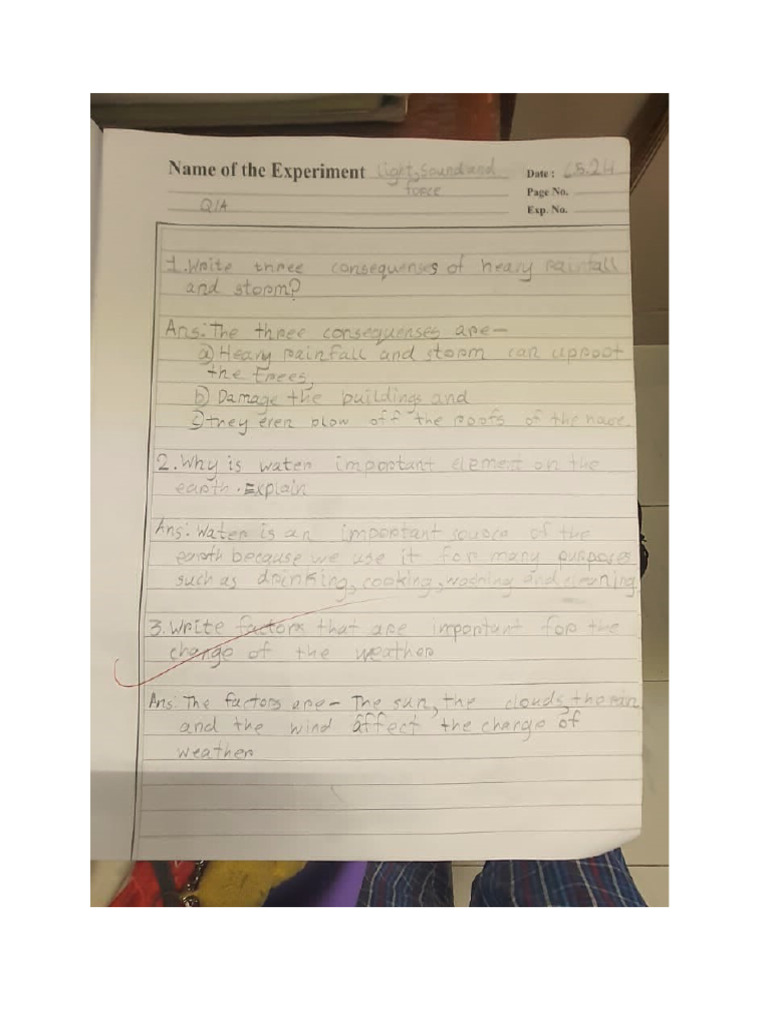 Name of the Experiment Light, Sound and
force
Date : 5.24
Page No.
Exp. No.
Q/A
1. Write three consequenses of heavy rainfall
and storm?
Ans: The three consequenses are—
a) Heavy rainfall and storm can uproot
the trees,
b) Damage the buildings and
c) they even blow off the roofs of the
2. Why is water important element on the
earth. Explain
Ans: Water is an important source of the
earth because we use it for many purposes
such as drinking, cooking, washing and cleaning.
3. Write factors that are important for the
change of the weather
Ans: The factors are— The sun, the clouds, the rain
and the wind affect the change of
weather